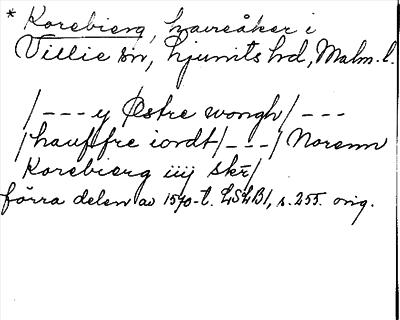 * Korebierg, havreåker i
Villie sn, Ljunits hd, Malm. l.
/---y Østre wongh/---
/hauffre iordt/---/ Norenn
Korebierg iiij skr/
förra delen av 1570-t. LSLB1, s. 255. orig.